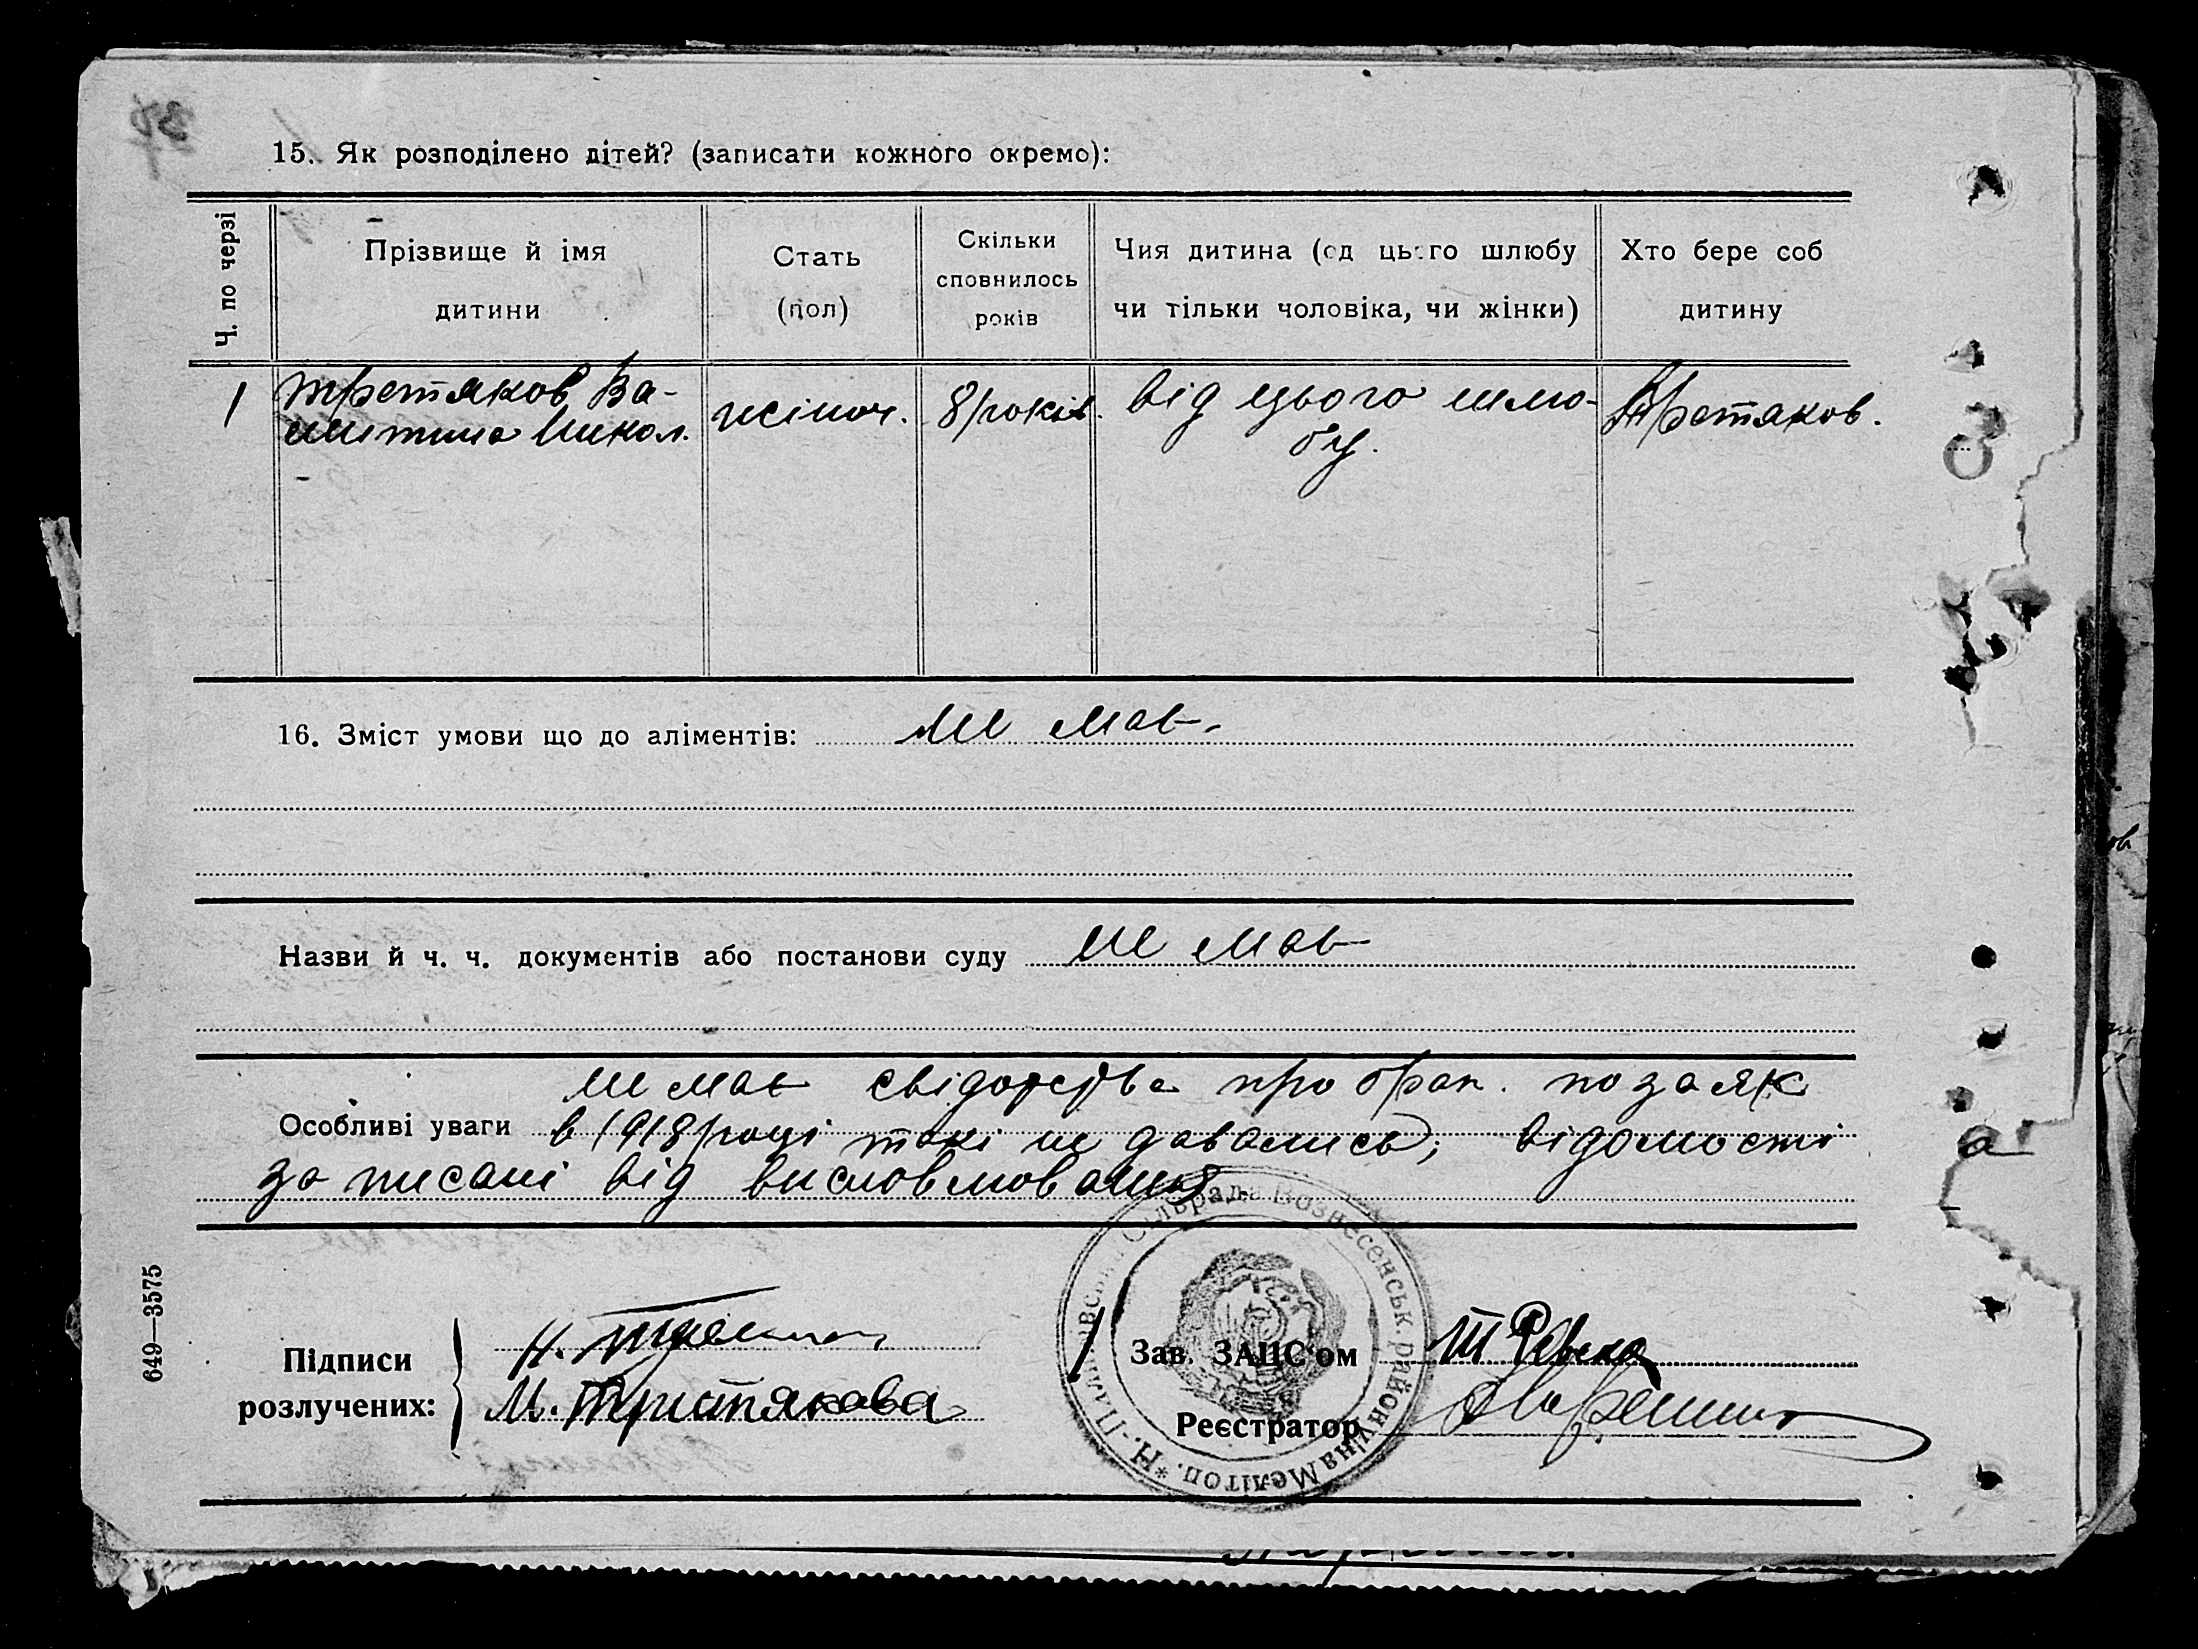 15. Як розподілено дітей? (записати кожного окремо):
Ч. по черзі
Прізвище й імя
дитини
Стать
(пол)
Скільки
сповнилось
років
Чия дитина (од цього шлюбу
чи тільки чоловіка, чи жінки)
Хто бере соб
дитину
1
Третяков Ва-
лентина Микол.
жіноч.
8 років.
від цього шлю-
бу.
Третяков.
16. Зміст умови що до аліментів: не має.
Назви й ч. ч. документів або постанови суду не має
не має свідоцтва про брак. позаяк
Особливі уваги в 1918 році такі не давались, відомості
записані від висловлювання
649—3575
Підписи
розлучених:
Н. Третяков
М. Третякова
Зав. ЗАЦС'ом
Реєстратор
Сільрада Вознесенськ. району на Мелітоп. * Н.-